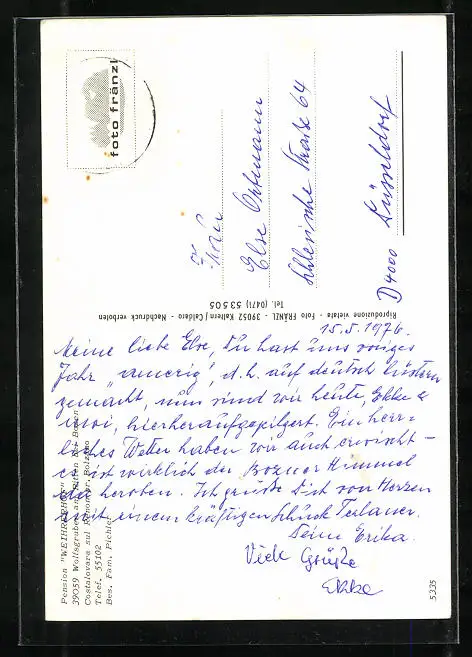 foto fränzl
Frau
Else Ortmann
Schlesische Straße 64
D 4000 Düsseldorf
Riproduzione vietata - Foto FRÄNZL - 39052 Kaltern / Caldaro - Nachdruck verboten
Tel. (0471) 53505
15.5.1976.
Meine liebe Else, Du hast uns voriges
Jahr "amerig", d. h. auf deutsch lüstern
gemacht, nun sind wir heute, Ekke &
moi, hierheraufgepilgert. Ein herr-
liches Wetter haben wir auch erwischt -
es ist wirklich der Bozner Himmel
da heroben. Ich grüße Dich von Herzen
mit einem kräftigen Schluck Terlaner.
Deine Erika.
Viele Grüße
Ekke
Pension "WEIHRERHOF"
39059 Wolfsgruben am Ritten bei Bozen
Costalovara sul Renon pr. Bolzano
Telef. 55102
Bes. Fam. Pichler
5335